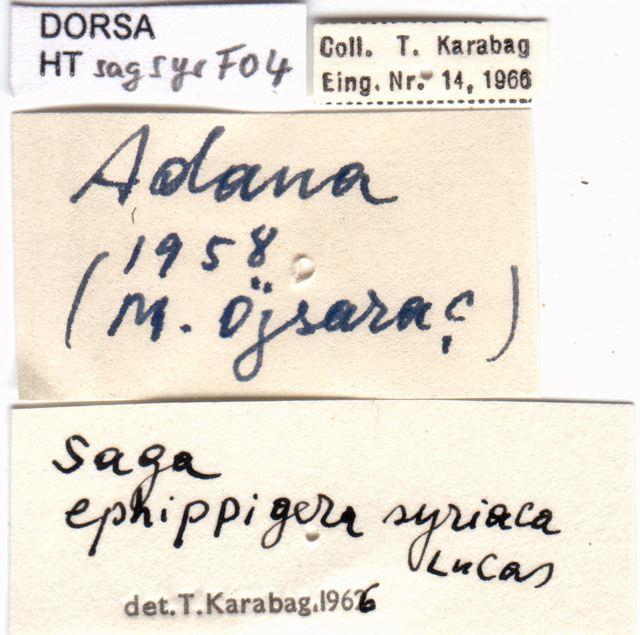 DORSA
HT sagsyrF04
Coll. T. Karabag
Eing. Nr. 14, 1966
Adana
1958
(M. Öjsaraç)
Saga
ephippigera syriaca
Lucas
det.T.Karabag.1966